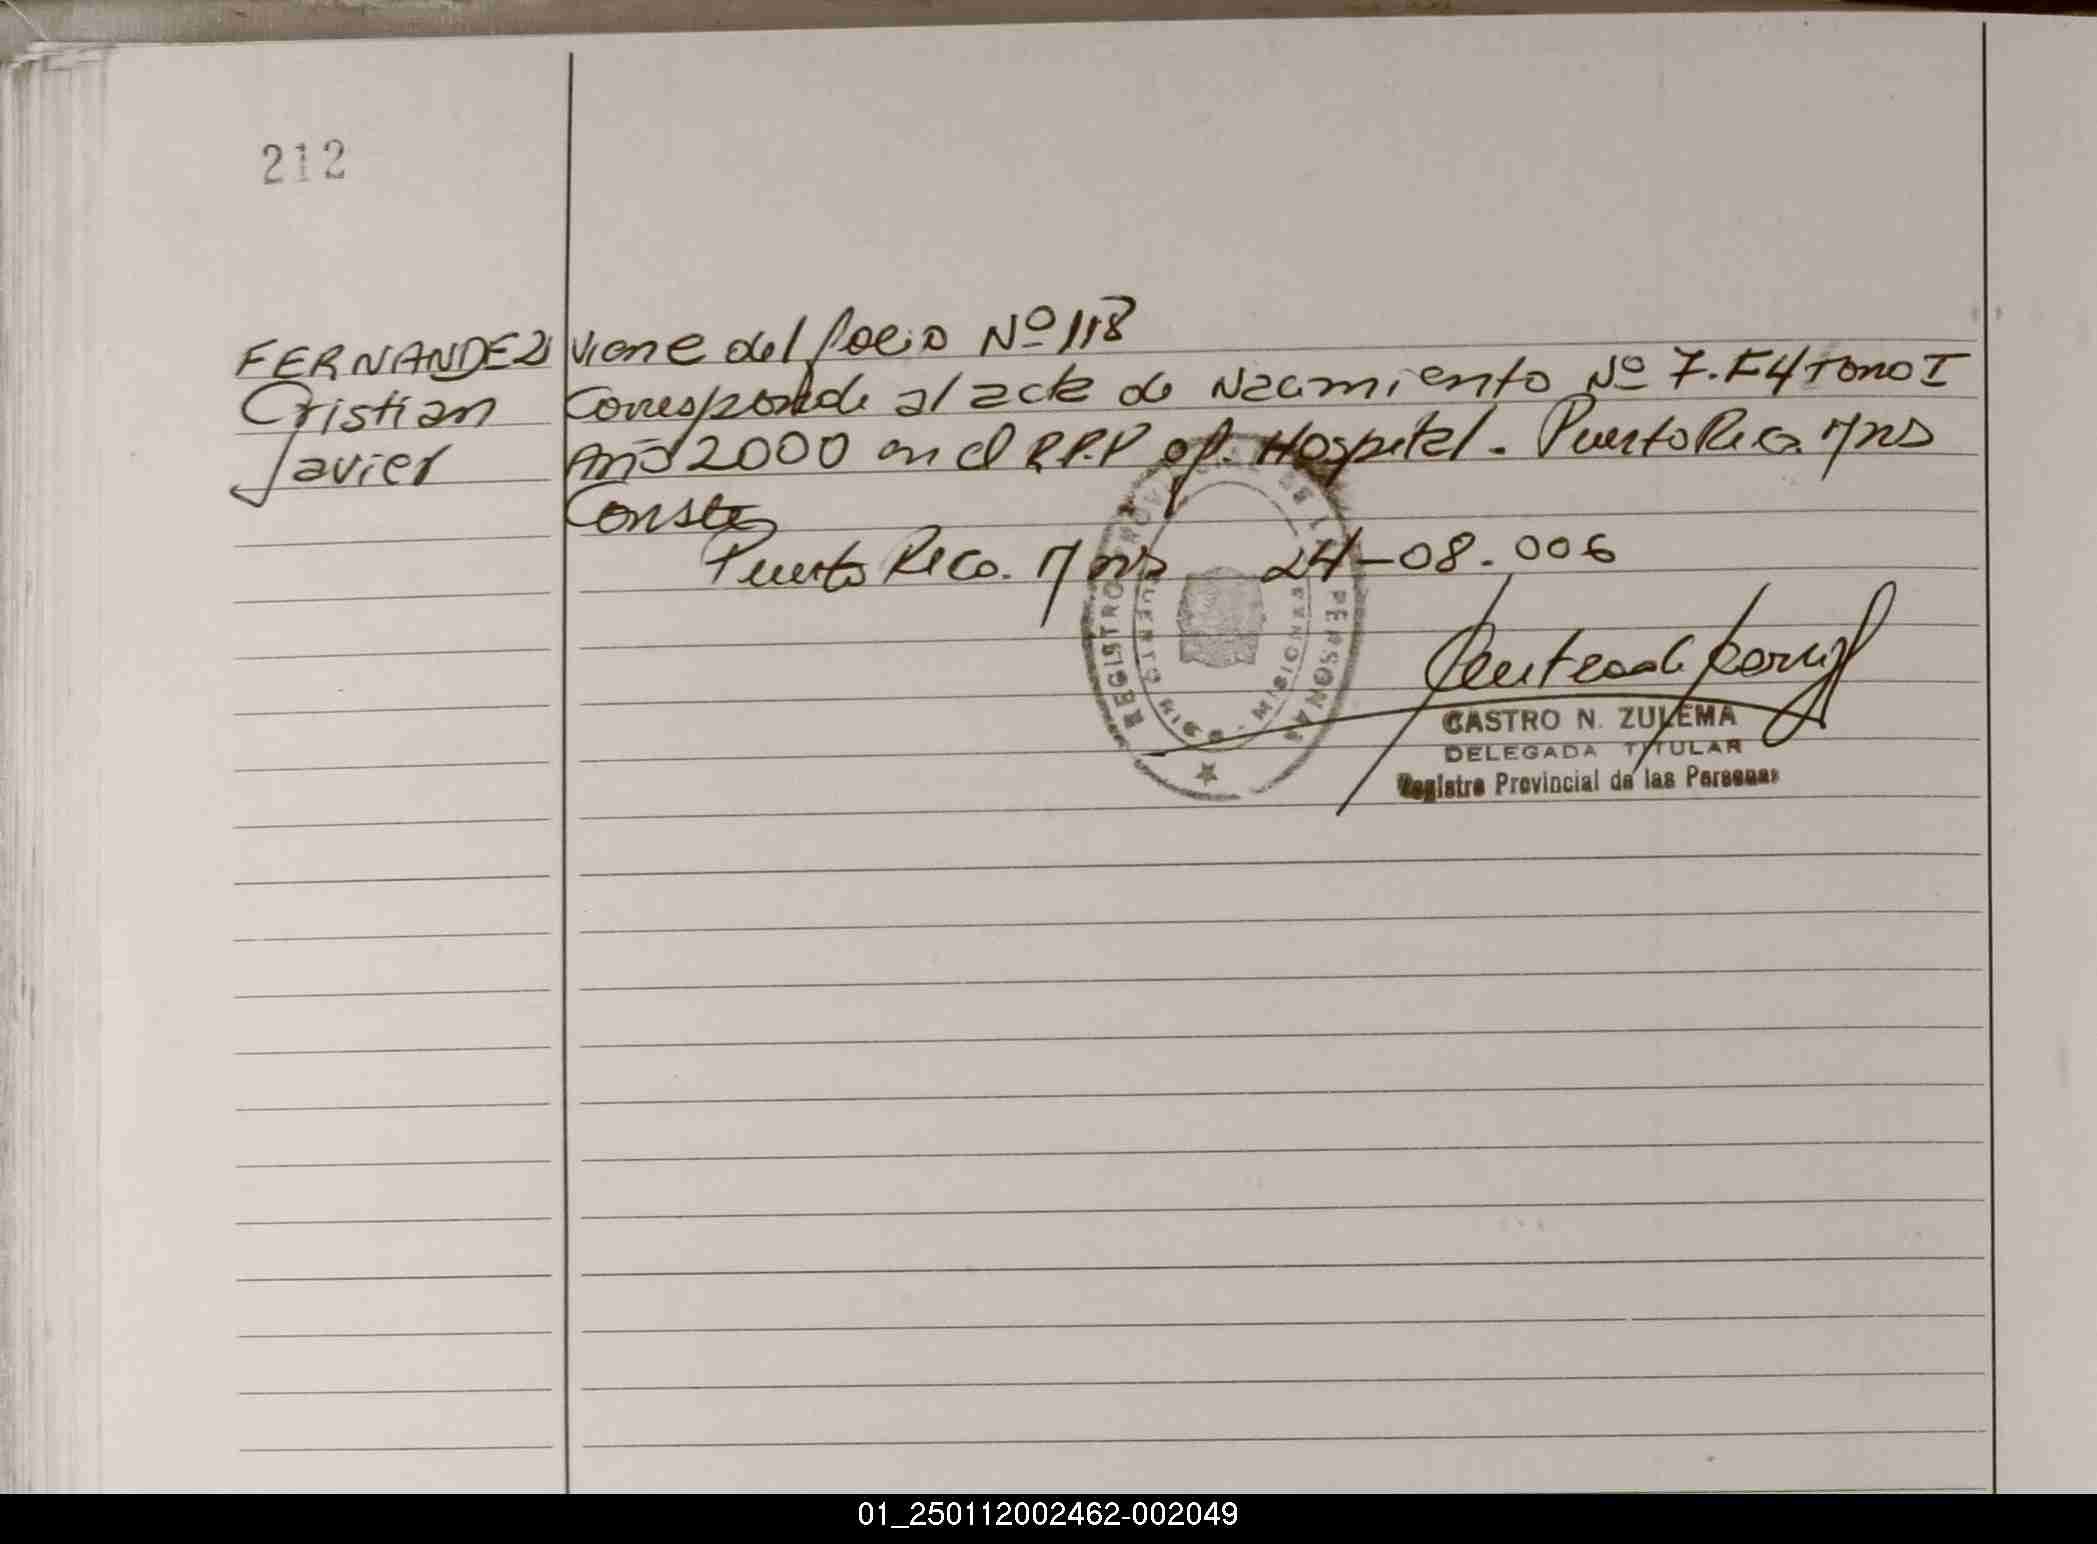 212
FERNANDEZ viene del folio Nº 118
Cristian Corresponde al acta de Nacimiento Nº 7. F4 Tomo I
Javier Año 2000 en el R.P.P of. Hospital. Puerto Rico. Mns
Conste
Puerto Rico. Mns 24-08-006
REGISTRO PROVINCIAL DE LAS PERSONAS
PUERTO RICO - MISIONES
CASTRO N. ZULEMA
DELEGADA TITULAR
Registro Provincial de las Personas
01_250112002462-002049